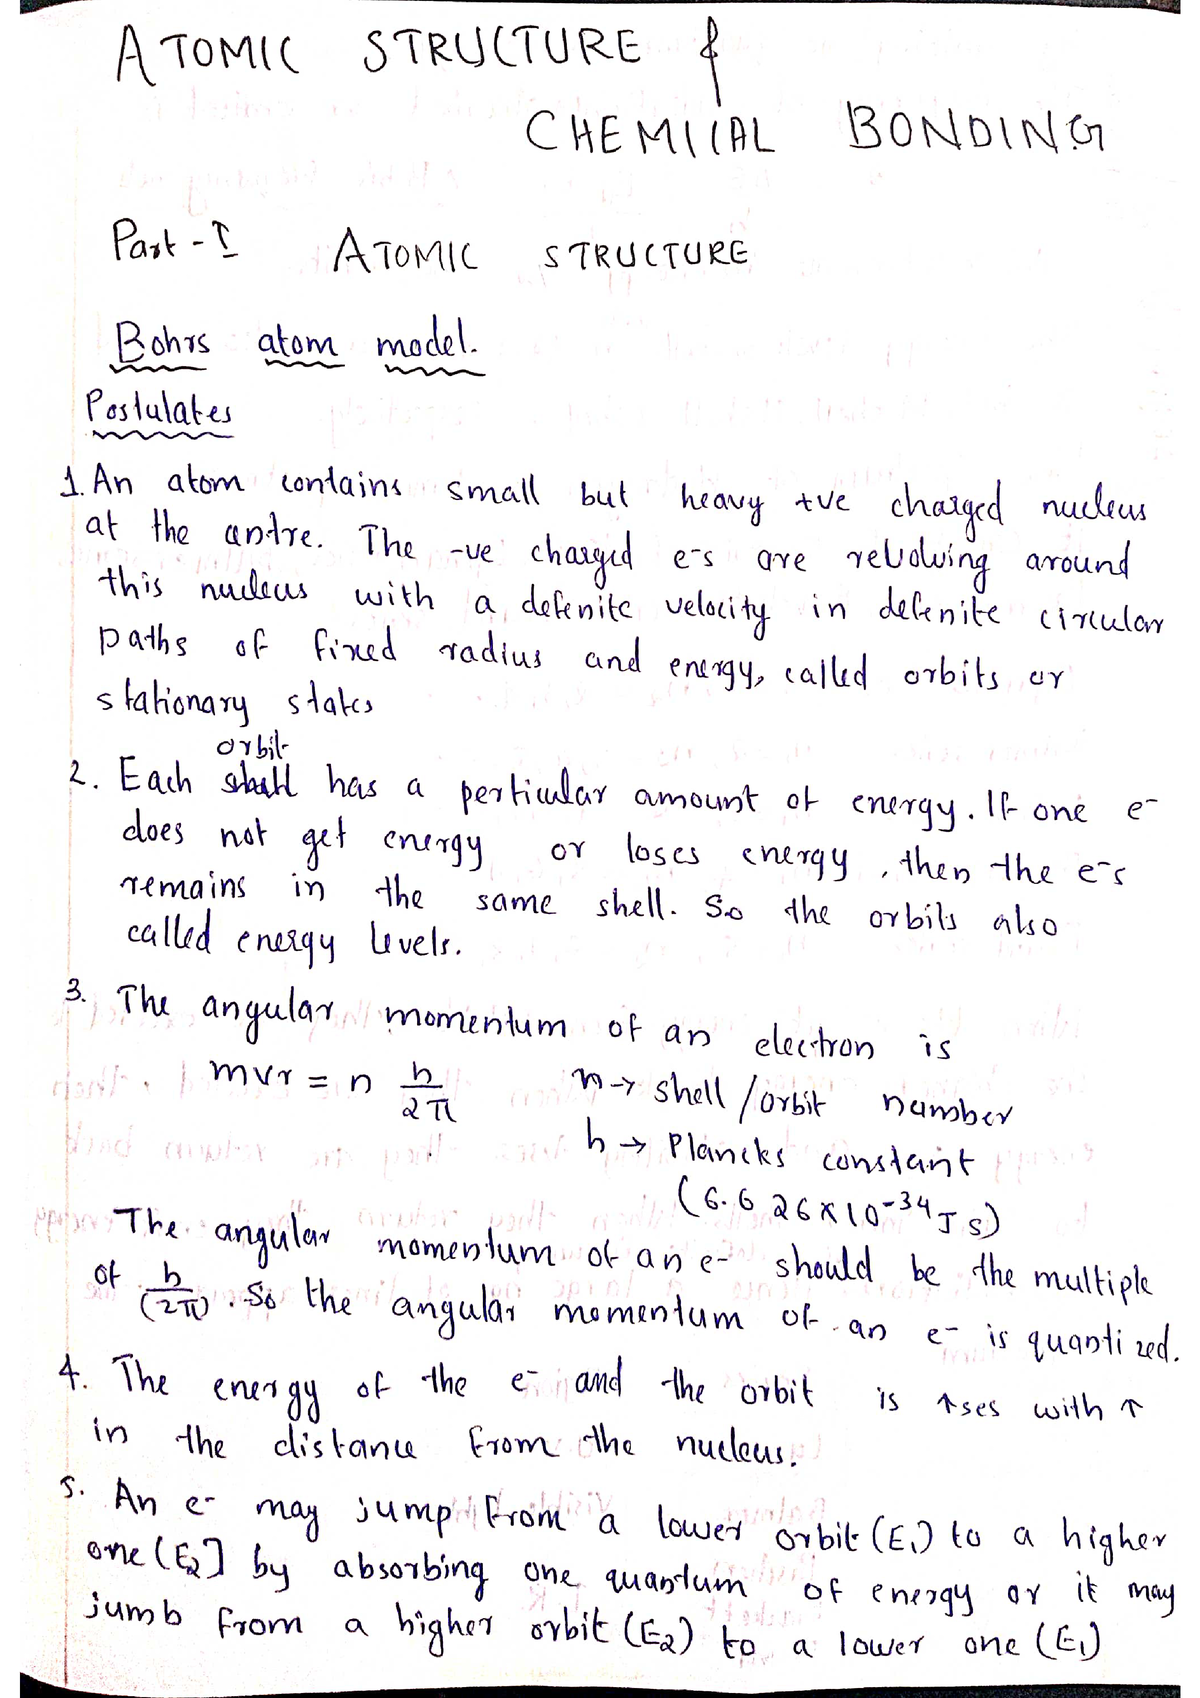 ATOMIC STRUCTURE &
CHEMICAL BONDING
Part - I ATOMIC STRUCTURE
Bohrs atom model.
Postulates
1. An atom contains small but heavy +ve charged nucleus
at the centre. The -ve charged e-s are revolving around
this nucleus with a definite velocity in definite circular
paths of fixed radius and energy, called orbits or
stationary states
orbit
2. Each shell has a perticular amount of energy. If one e-
does not get energy or loses energy, then the e-s
remains in the same shell. So the orbits also
called energy levels.
3. The angular momentum of an electron is
mvr = n h/2π n → shell /orbit number
h → Plancks constant
(6.626 x 10^-34 J s)
The angular momentum of an e- should be the multiple
of h/(2π). So the angular momentum of an e- is quantized.
4. The energy of the e- and the orbit is ↑ses with ↑
in the distance from the nucleus.
5. An e- may jump from a lower orbit (E1) to a higher
one (E2] by absorbing one quantum of energy or it may
jumb from a higher orbit (E2) to a lower one (E1)